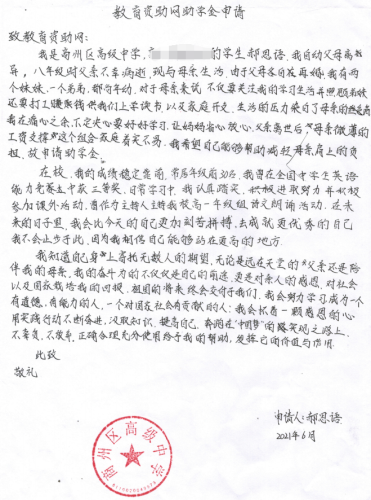 教育资助网助学金申请
致教育资助网:
我是商州区高级中学,高 的学生郝思语,我自幼父母离
异,八年级时父亲不幸病逝,现与母亲生活,由于父母各自再婚,我有两
个妹妹,一个弟弟,都尚年幼,对于母亲来说,不仅要关注我的学习生活并照顾弟妹
还要打工赚取钱供我们上学读书,以及家庭开支,生活的压力染白了母亲的
我在痛心之余,下定决心要好好学习,让妈妈省心放心,父亲离世后,母亲微薄的
工资支撑这个组合家庭着实不易,我希望自己能够帮助减轻母亲肩上的负
担,故申请助学金。
在校,我的成绩稳定靠前,常居年级前20名,我曾在全国中学生英语
能力竞赛中获三等奖,日常学习中,我认真踏实,积极进取努力并积极
参加课外活动,曾作为主持人主持我校高一年级组诗文朗诵活动,在未
来的日子里,我会比今天的自己更加刻苦拼搏,去成就更优秀的自己
我不会止步于此,因为我相信自己能够站在更高的地方.
我知道自己身上寄托无数人的期望,无论是远在天堂的父亲还是陪
伴我的母亲,我的奋斗为的不仅仅是自己的前途,更是对亲人的感恩,对社会
以及国家栽培我的回报,祖国的将来终会交付于我们,我会努力学习成为一个
有道德,有能力的人,一个对国家社会有贡献的人;我会怀着一颗感恩的心
用实践行动不断奋进,汲取知识,提高自己,奔跑在“中国梦”的路实现之路上,
不辜负,不放弃,正确合理充分使用给予我的帮助,发挥它的价值与作用.
此致
敬礼
申请人:郝思语
2021年6月
商州区高级中学